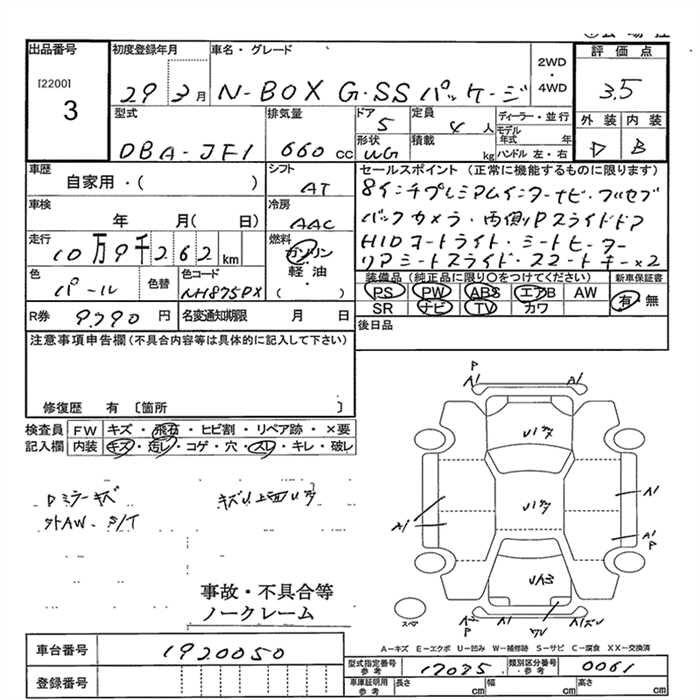 出品番号
[2200]
3
初度登録年月 29 3月
車名・グレード N-BOX G・SS パッケージ
2WD・4WD
評価点 3.5
外装 D 内装 B
型式 DBA-JF1
排気量 660 cc
ドア 5
形状 WG
定員 4人
積載 kg
ディーラー・並行
モデル年式 年
ハンドル 左・右
車歴 自家用・( )
シフト AT
車検 年 月( 日)
冷房 AAC
走行 10万9千262km
燃料 ガソリン・軽油・( )
色 パール
色替
色コード NH875PX
R券 9,790円
名変通知期限 月 日
セールスポイント (正常に機能するものに限ります)
8インチプレミアムインターナビ・フルセグ
バックカメラ・両側Pスライドドア
HIDオートライト・シートヒーター
リアシートスライド・スマートキー×2
装備品(純正品に限り〇をつけてください)
新車保証書 有 無
PS PW ABS エアB AW
SR ナビ TV カワ
後日品
注意事項申告欄(不具合内容等は具体的に記入して下さい)
修復歴 有〔箇所 〕
検査員記入欄
FW キズ・飛石・ヒビ割・リペア跡・×要
内装 キズ・汚し・コゲ・穴・スレ・キレ・破レ
Dミラーキズ
キズU上面Uタ
外AW
事故・不具合等
ノークレーム
P
A1
A1
A1
A1
A1
P
スペ
P
A-キズ E-エクボ U-凹み W-補修跡 S-サビ C-腐食 XX-交換済
車台番号 1920050
登録番号
型式指定番号 参考 17035
類別区分番号 参考 0061
車庫証明用 参考 長さ cm 幅 cm 高さ cm